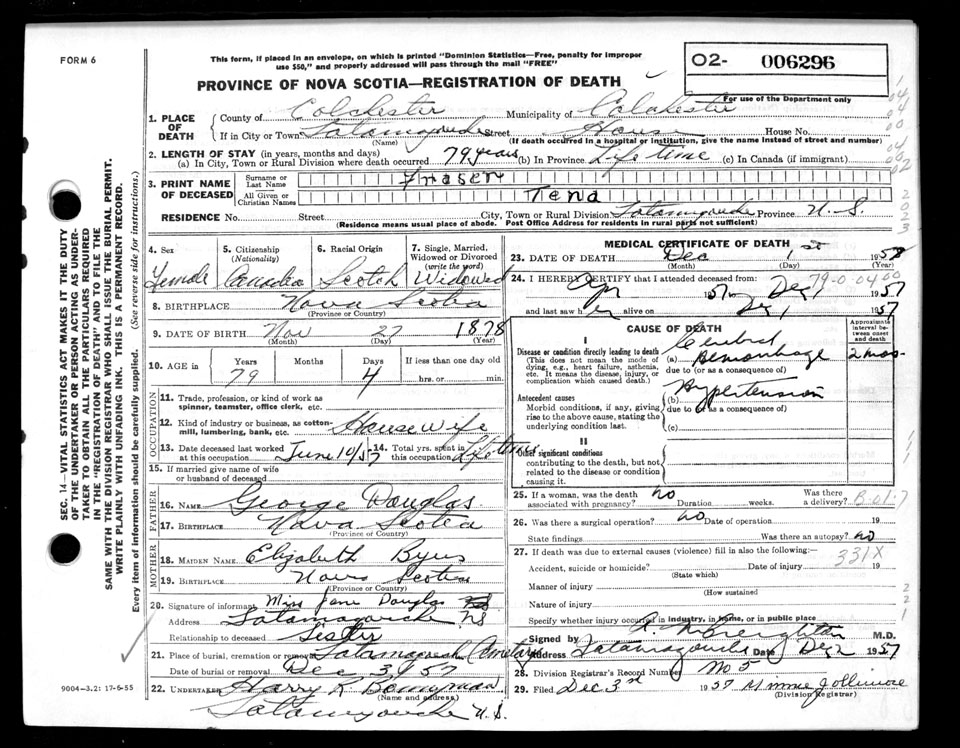 FORM 6
This form, if placed in an envelope, on which is printed "Dominion Statistics—Free, penalty for improper
use $50," and properly addressed will pass through the mail "FREE"
PROVINCE OF NOVA SCOTIA—REGISTRATION OF DEATH
02- 006296
For use of the Department only
1. PLACE OF DEATH
County of Colchester Municipality of Colchester
If in City or Town Tatamagouche Street House House No.
(Name) (If death occurred in a hospital or institution, give the name instead of street and number)
2. LENGTH OF STAY (in years, months and days)
(a) In City, Town or Rural Division where death occurred 79 years (b) In Province Life time (c) In Canada (if immigrant)
3. PRINT NAME OF DECEASED
Surname or Last Name Fraser
All Given or Christian Names Tena
RESIDENCE No. Street City, Town or Rural Division Tatamagouche Province N.S.
(Residence means usual place of abode. Post Office Address for residents in rural parts not sufficient)
4. Sex Female
5. Citizenship (Nationality) Canadian
6. Racial Origin Scotch
7. Single, Married, Widowed or Divorced (write the word) Widowed
8. BIRTHPLACE Nova Scotia
(Province or Country)
9. DATE OF BIRTH Nov 27 1878
(Month) (Day) (Year)
10. AGE in Years Months Days If less than one day old
79 4 hrs. or min.
OCCUPATION
11. Trade, profession, or kind of work as
spinner, teamster, office clerk, etc.
12. Kind of industry or business, as cotton-
mill, lumbering, bank, etc. Housewife
13. Date deceased last worked at this occupation June 10/57 14. Total yrs. spent in this occupation Life time
15. If married give name of wife
or husband of deceased
FATHER
16. NAME George Douglas
17. BIRTHPLACE Nova Scotia
(Province or Country)
MOTHER
18. MAIDEN NAME Elizabeth
19. BIRTHPLACE Nova Scotia
(Province or Country)
20. Signature of informant Miss Jane Douglas
Address Tatamagouche NS
Relationship to deceased Sister
21. Place of burial, cremation or removal Tatamagouche Cemetary
Date of burial or removal Dec 3/57
22. UNDERTAKER Harry R Bonnyman
(Name and address)
Tatamagouche N.S.
MEDICAL CERTIFICATE OF DEATH
23. DATE OF DEATH Dec 1 195
(Month) (Day) (Year)
24. I HEREBY CERTIFY that I attended deceased from: 79-0-04 00
Apr 1957 to Dec 1 1957
and last saw her alive on Dec 1 1957
CAUSE OF DEATH
Approximate interval between onset and death
I
Disease or condition directly leading to death
(This does not mean the mode of
dying, e.g., heart failure, asthenia,
etc. It means the disease, injury, or
complication which caused death.)
(a) Cerebral Hemorrhage 2 mos-
due to (or as a consequence of)
Antecedent causes
Morbid conditions, if any, giving
rise to the above cause, stating the
underlying condition last.
(b) Hypertension
due to (or as a consequence of)
(c)
II
Other significant conditions
contributing to the death, but not
related to the disease or condition
causing it.
25. If a woman, was the death associated with pregnancy? no Duration weeks. Was there a delivery?
26. Was there a surgical operation? no Date of operation 19
State findings Was there an autopsy? no
27. If death was due to external causes (violence) fill in also the following:—
Accident, suicide or homicide? Date of injury 19
331X
(State which)
Manner of injury
(How sustained
Nature of injury
Specify whether injury occurred in industry, in home, or in public place
Signed by Creighton M.D.
Address Tatamagouche Date Dec 2 1957
28. Division Registrar's Record Number No 5
29. Filed Dec 3rd 1957 Minnie Jollimore
(Division Registrar)
SEC. 14—VITAL STATISTICS ACT MAKES IT THE DUTY
OF THE UNDERTAKER OR PERSON ACTING AS UNDER-
TAKER TO OBTAIN ALL THE PARTICULARS REQUIRED
IN THE "REGISTRATION OF DEATH" AND TO FILE THE
SAME WITH THE DIVISION REGISTRAR WHO SHALL ISSUE THE BURIAL PERMIT.
WRITE PLAINLY WITH UNFADING INK. THIS IS A PERMANENT RECORD.
Every item of information should be carefully supplied. (See reverse side for instructions.)
9004-3.2: 17-6-55